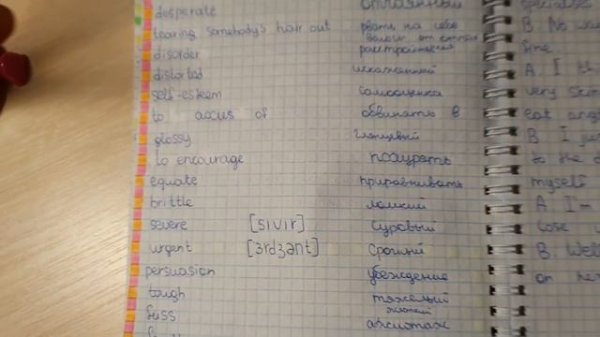 desperate отчаянный
tearing somebody's hair out рвать на себе
волосы от
disorder расстройство
distorted искаженный
self-esteem самооценка
to accus of обвинять в
glossy глянцевый
to encourage поощрять
equate приравнивать
brittle ломкий
severe [sivir] суровый
urgent [ɜrdʒənt] срочный
persuasion убеждение
tough тяжелый
жесткий
fuss ажиотаж
B. No
fine
A. I
very
eat
B. I
to the
myself
A. I'm
B. Well
on